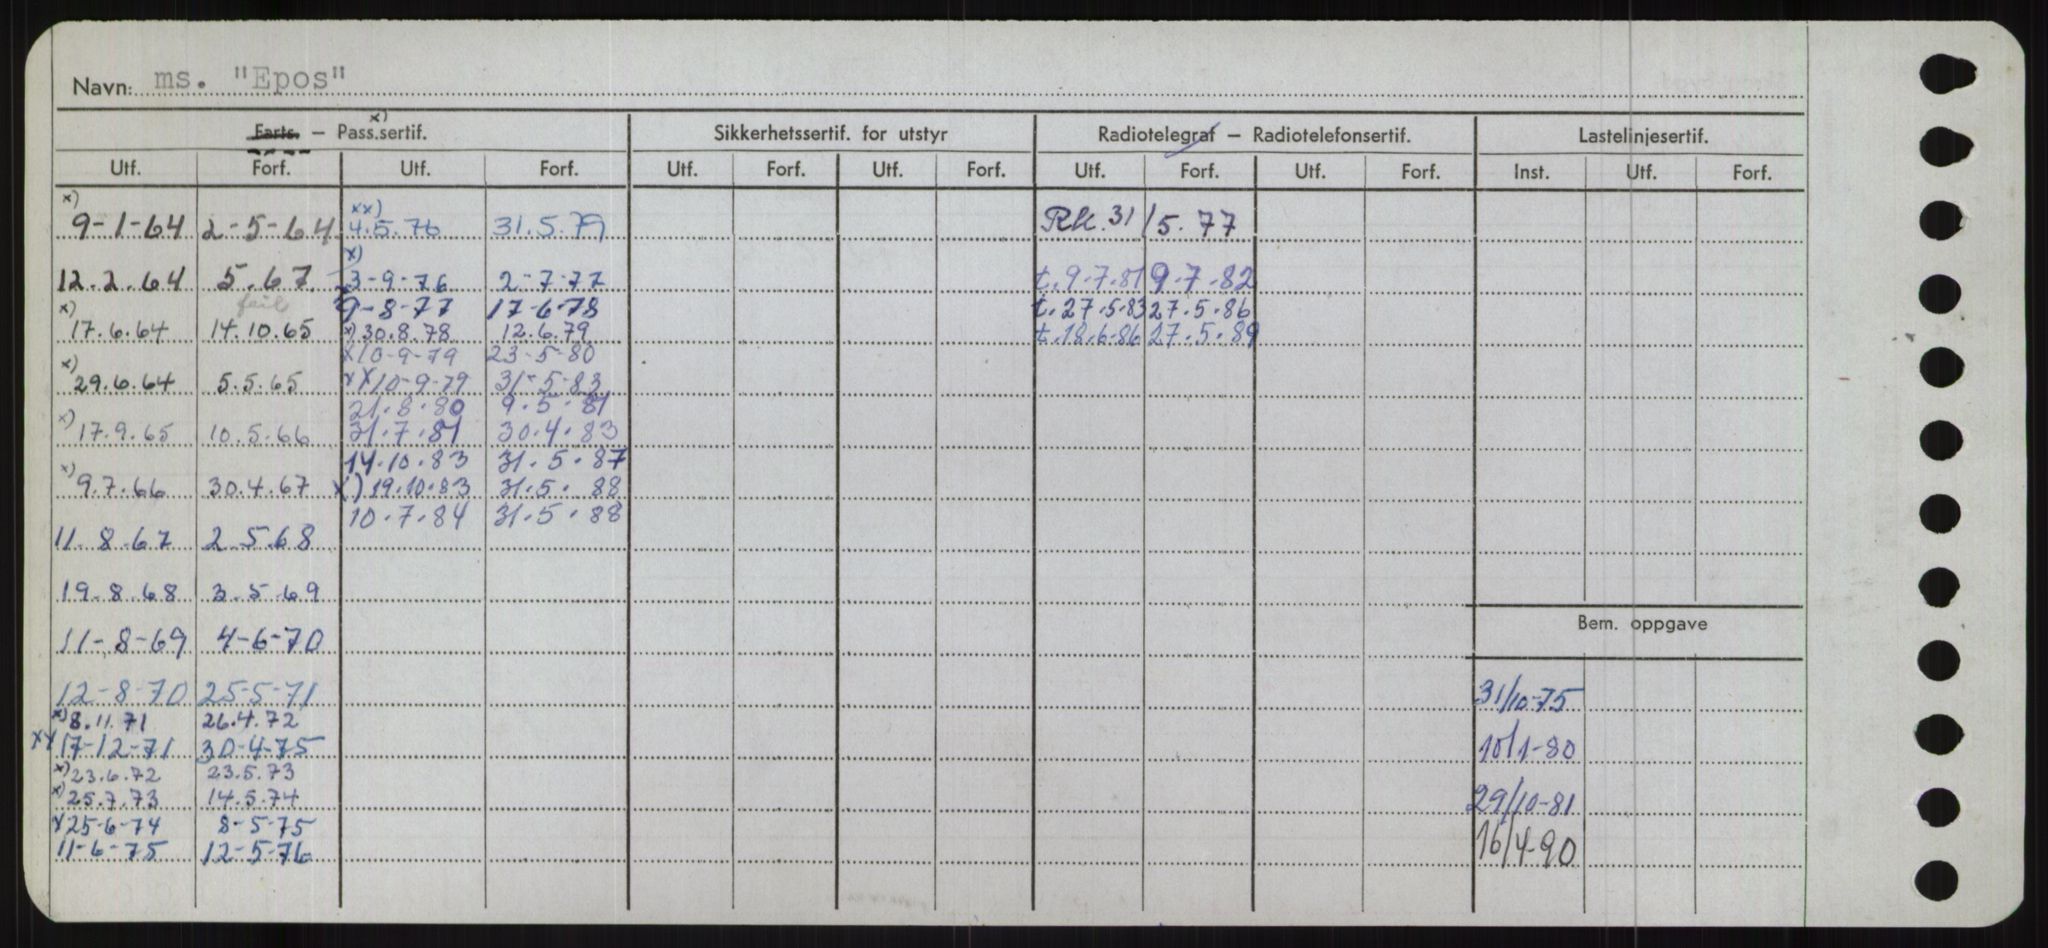 Navn: ms. "Epos"
Farts. – Pass.sertif. x)
Sikkerhetssertif. for utstyr
Radiotelegraf – Radiotelefonsertif.
Lastelinjesertif.
Utf. Forf. Utf. Forf. Utf. Forf. Utf. Forf. Utf. Forf. Utf. Forf. Inst. Utf. Forf.
x) 9-1-64 2-5-64 xx) 4.5.76 31.5.79 Rk. 31/5.77
12.2.64 5.67 x) 3-9-76 2-7-77 t.9.7.81 9.7.82
feil 9-8-77 17-6-78 t.27.5.83 27.5.86
x) 17.6.64 14.10.65 x) 30.8.78 12.6.79 t.18.6.86 27.5.89
x 10-9-79 23-5-80
x) 29.6.64 5.5.65 xx 10-9-79 31-5-83
21.8.80 9.5.81
x) 17.9.65 10.5.66 31.7.81 30.4.83
14.10.83 31.5.87
x) 9.7.66 30.4.67 x) 19.10.83 31.5.88
10.7.84 31.5.88
11.8.67 2.5.68
19.8.68 3.5.69
Bem. oppgave
11-8-69 4-6-70
12-8-70 25-5-71 31/10-75
x) 8.11.71 26.4.72
xx 17-12-71 30-4-75 10/1-80
x) 23.6.72 23.5.73
x) 25.7.73 14.5.74 29/10-81
x 25-6-74 8-5-75
11-6-75 12-5-76 16/4-90